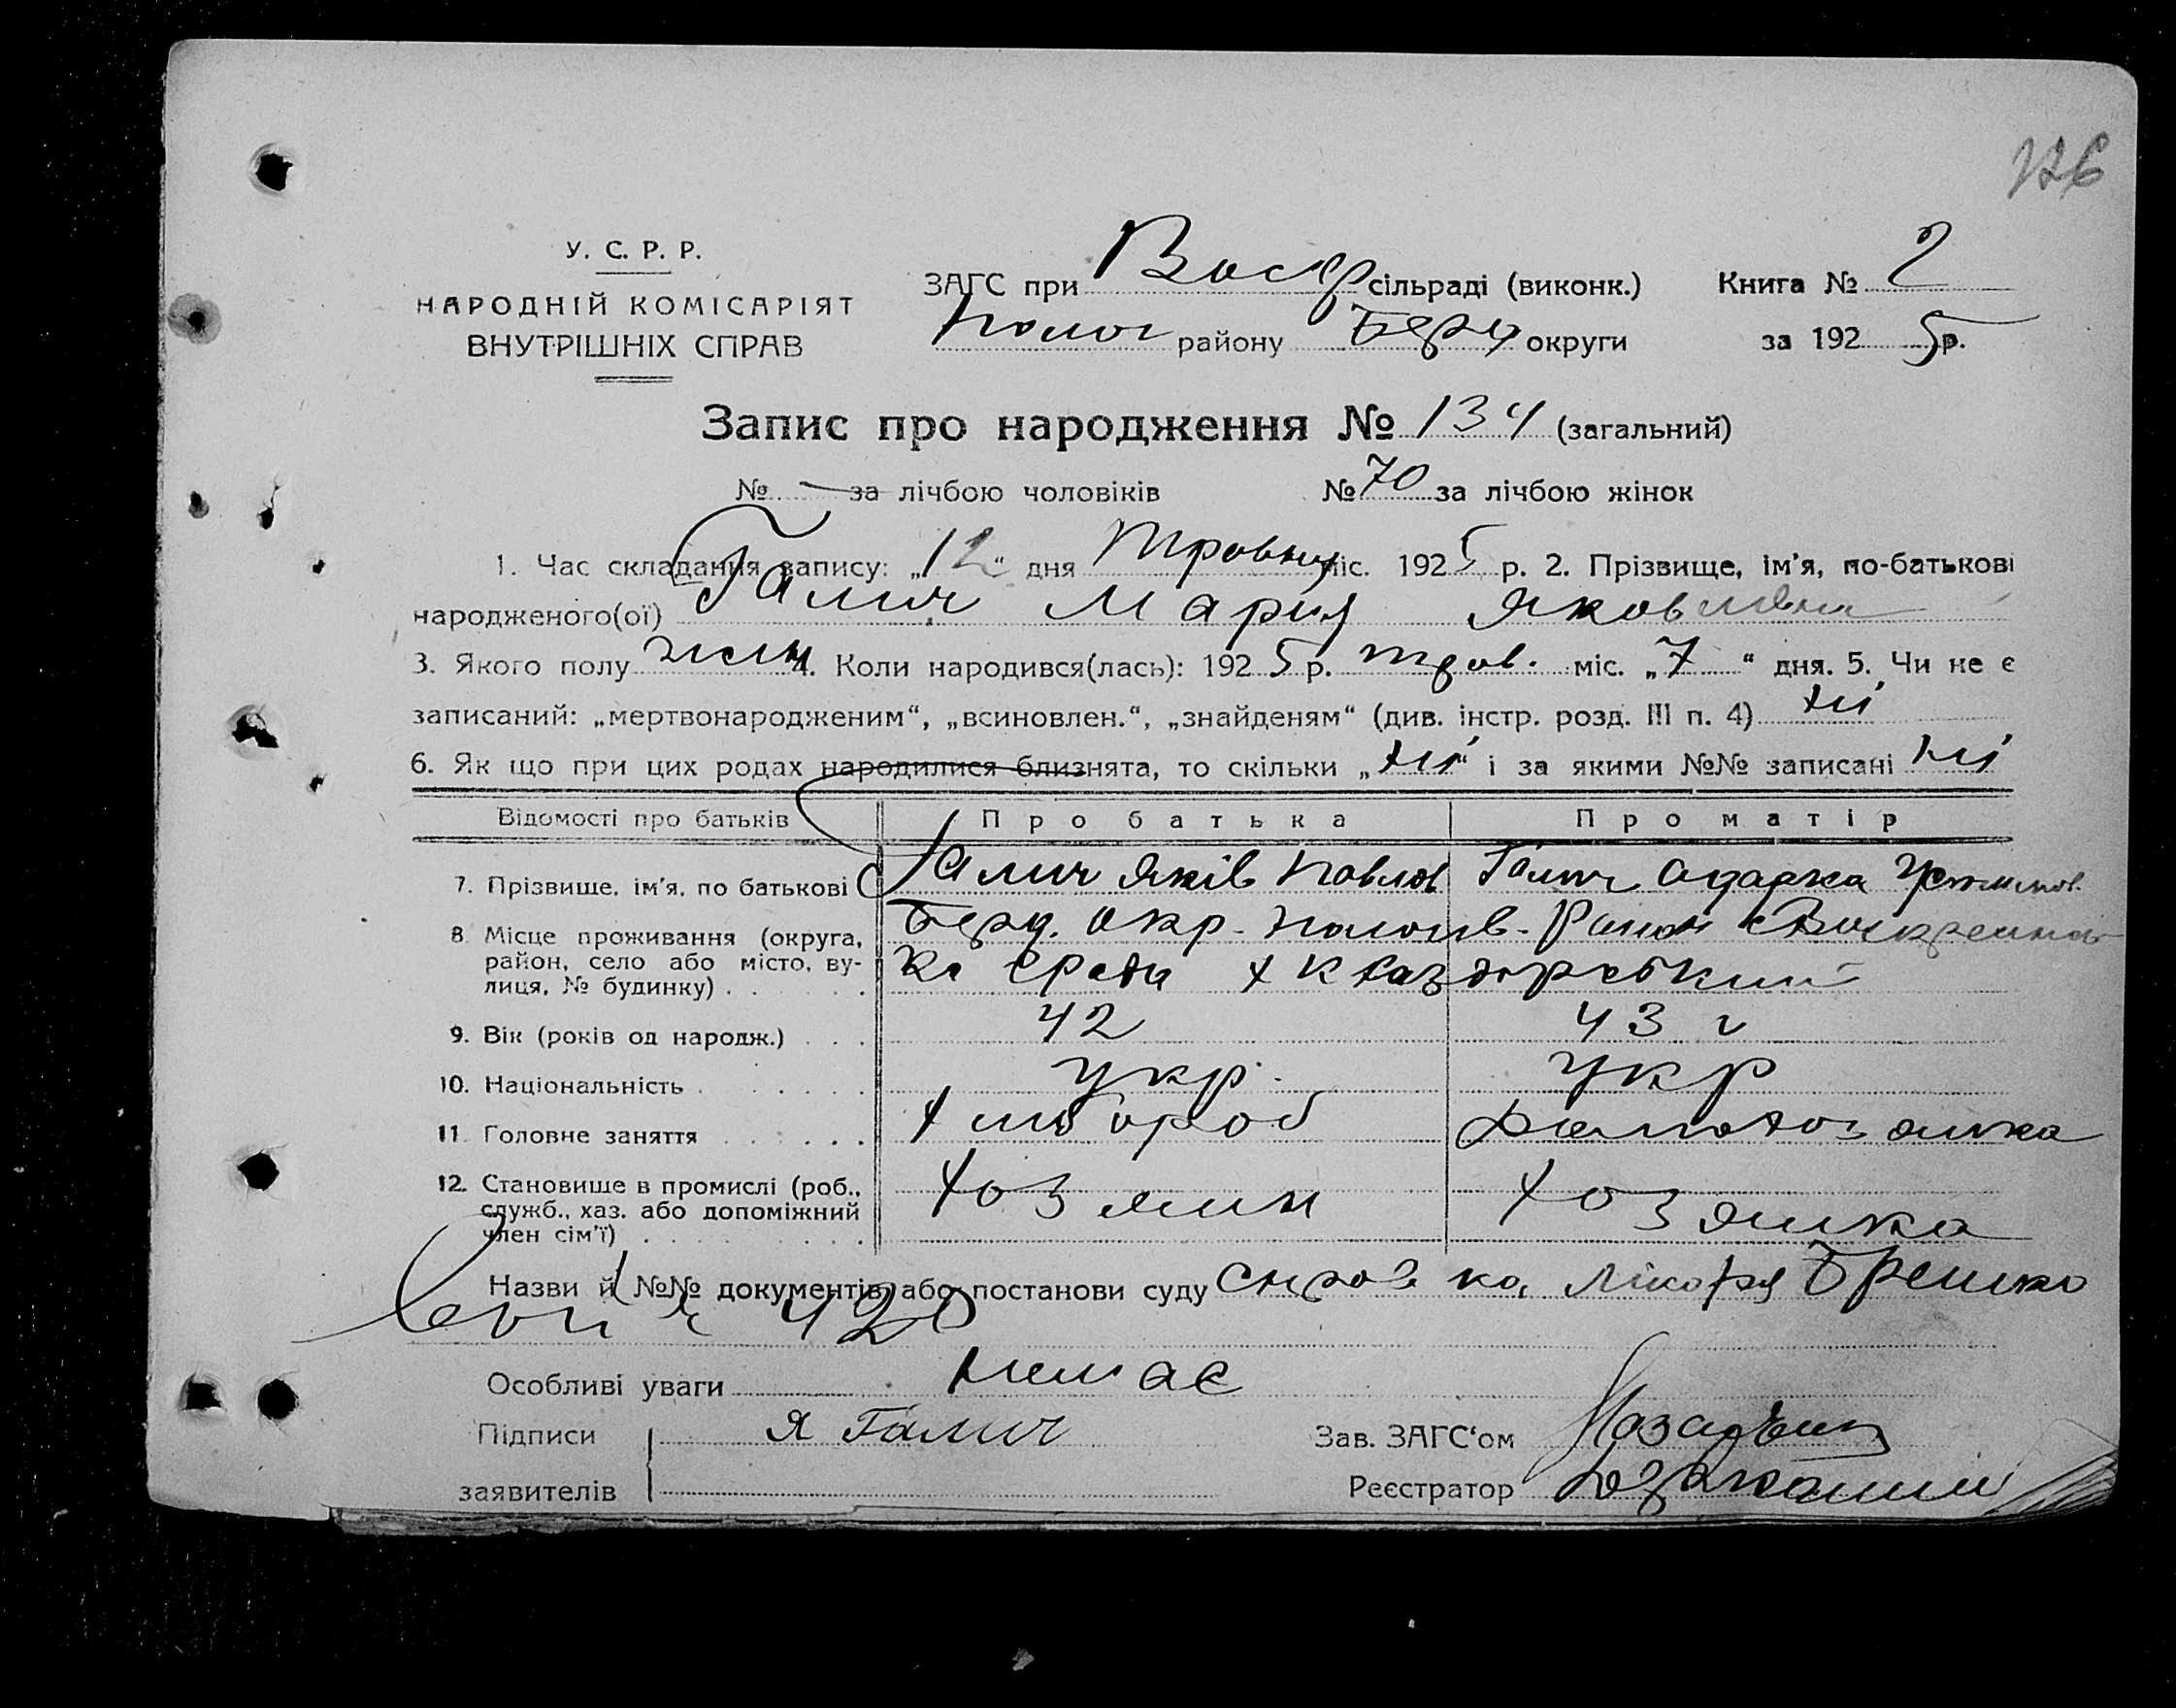 126
У. С. Р. Р.
НАРОДНІЙ КОМІСАРІЯТ
ВНУТРІШНІХ СПРАВ
ЗАГС при Воскр сільраді (виконк.) Книга № 2
Полог району Берд округи за 1925 р.
Запис про народження № 134 (загальний)
№ — за лічбою чоловіків № 70 за лічбою жінок
1. Час складання запису: „12“ дня Травня міс. 1925 р. 2. Прізвище, ім'я, по-батькові
народженого(ої) Галич Мария Яковлівна
3. Якого полу жін 4. Коли народився(лась): 1925 р. трав. міс. „7“ дня. 5. Чи не є
записаний: „мертвонародженим“, „всиновлен.“, „знайденям“ (див. інстр. розд. III п. 4) ні
6. Як що при цих родах народилися близнята, то скільки „ні“ і за якими №№ записані ні
Відомості про батьків Про батька Про матір
7. Прізвище, ім'я, по батькові Галич Яків Павлов Галич Одарка Устимов.
8. Місце проживання (округа, район, село або місто, вулиця, № будинку) Берд. окр. Пологів. Район
Ка С рада
9. Вік (років од народж.) 42 43 г
10. Національність укр. укр
11. Головне заняття хлібороб Домохозяйка
12. Становище в промислі (роб., служб., хаз. або допоміжний член сім'ї) Хозяин Хозяйка
Назви й №№ документів або постанови суду Справка Лікаря
420
Особливі уваги немає
Підписи заявителів Я Галич
Зав. ЗАГС'ом
Реєстратор